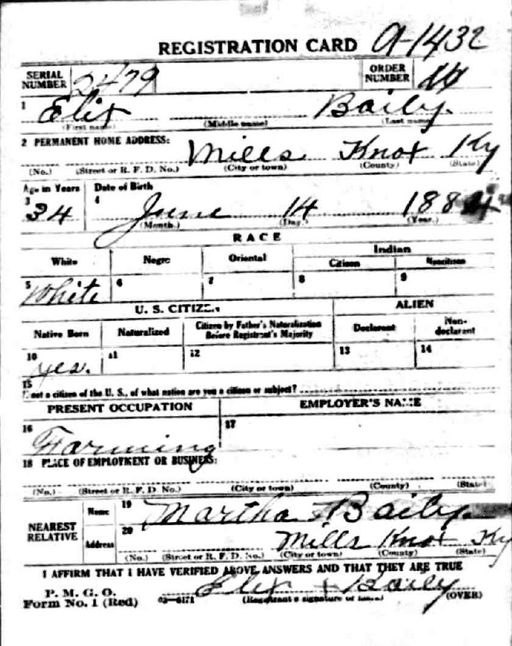 REGISTRATION CARD A-1432
SERIAL NUMBER 2479 ORDER NUMBER
1 Elix Baily.
(First name) (Middle name) (Last name)
2 PERMANENT HOME ADDRESS:
Mills Knox Ky
(No.) (Street or R. F. D. No.) (City or town) (County) (State)
Age in Years Date of Birth
3 34 4 June 14 1884
(Month.) (Day.) (Year.)
RACE
White Negro Oriental Indian
Citizen Noncitizen
5 White 6 7 8 9
U. S. CITIZEN ALIEN
Native Born Naturalized Citizen by Father's Naturalization Before Registrant's Majority Declarant Non-declarant
10 yes. 11 12 13 14
15
If not a citizen of the U. S., of what nation are you a citizen or subject?
PRESENT OCCUPATION EMPLOYER'S NAME
16 Farming 17
18 PLACE OF EMPLOYMENT OR BUSINESS:
(No.) (Street or R. F. D. No.) (City or town) (County) (State)
NEAREST RELATIVE Name 19 Martha Baily.
Address 20 Mills Knox Ky
(No.) (Street or R. F. D. No.) (City or town) (County) (State)
I AFFIRM THAT I HAVE VERIFIED ABOVE ANSWERS AND THAT THEY ARE TRUE
P. M. G. O.
Form No. 1 (Red) 03-6171 Elix x Baily
(Registrant's signature or mark) (OVER)